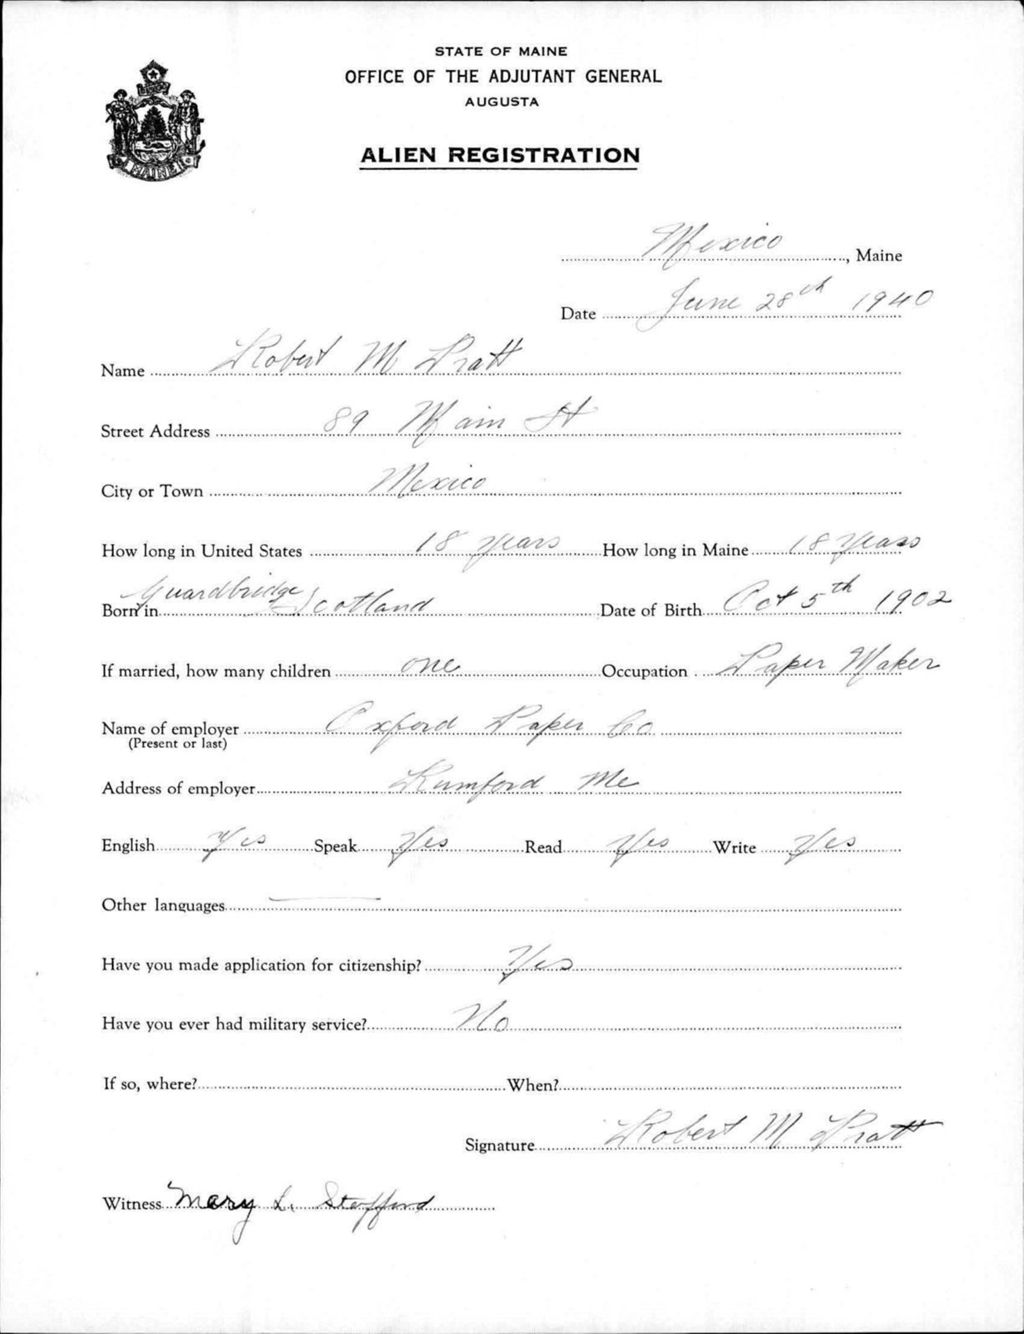 STATE OF MAINE
OFFICE OF THE ADJUTANT GENERAL
AUGUSTA
ALIEN REGISTRATION
MAINE
Mexico, Maine
Date June 28th 1940
Name Robert M Pratt
Street Address 89 Main St
City or Town Mexico
How long in United States 18 years How long in Maine 18 years
Born in Guardbridge Scotland Date of Birth Oct 5th 1902
If married, how many children one Occupation Paper Maker
Name of employer Oxford Paper Co
(Present or last)
Address of employer Rumford Me
English Yes Speak Yes Read Yes Write Yes
Other languages
Have you made application for citizenship? Yes
Have you ever had military service? No
If so, where? When?
Signature Robert M Pratt
Witness Mary L. Stafford